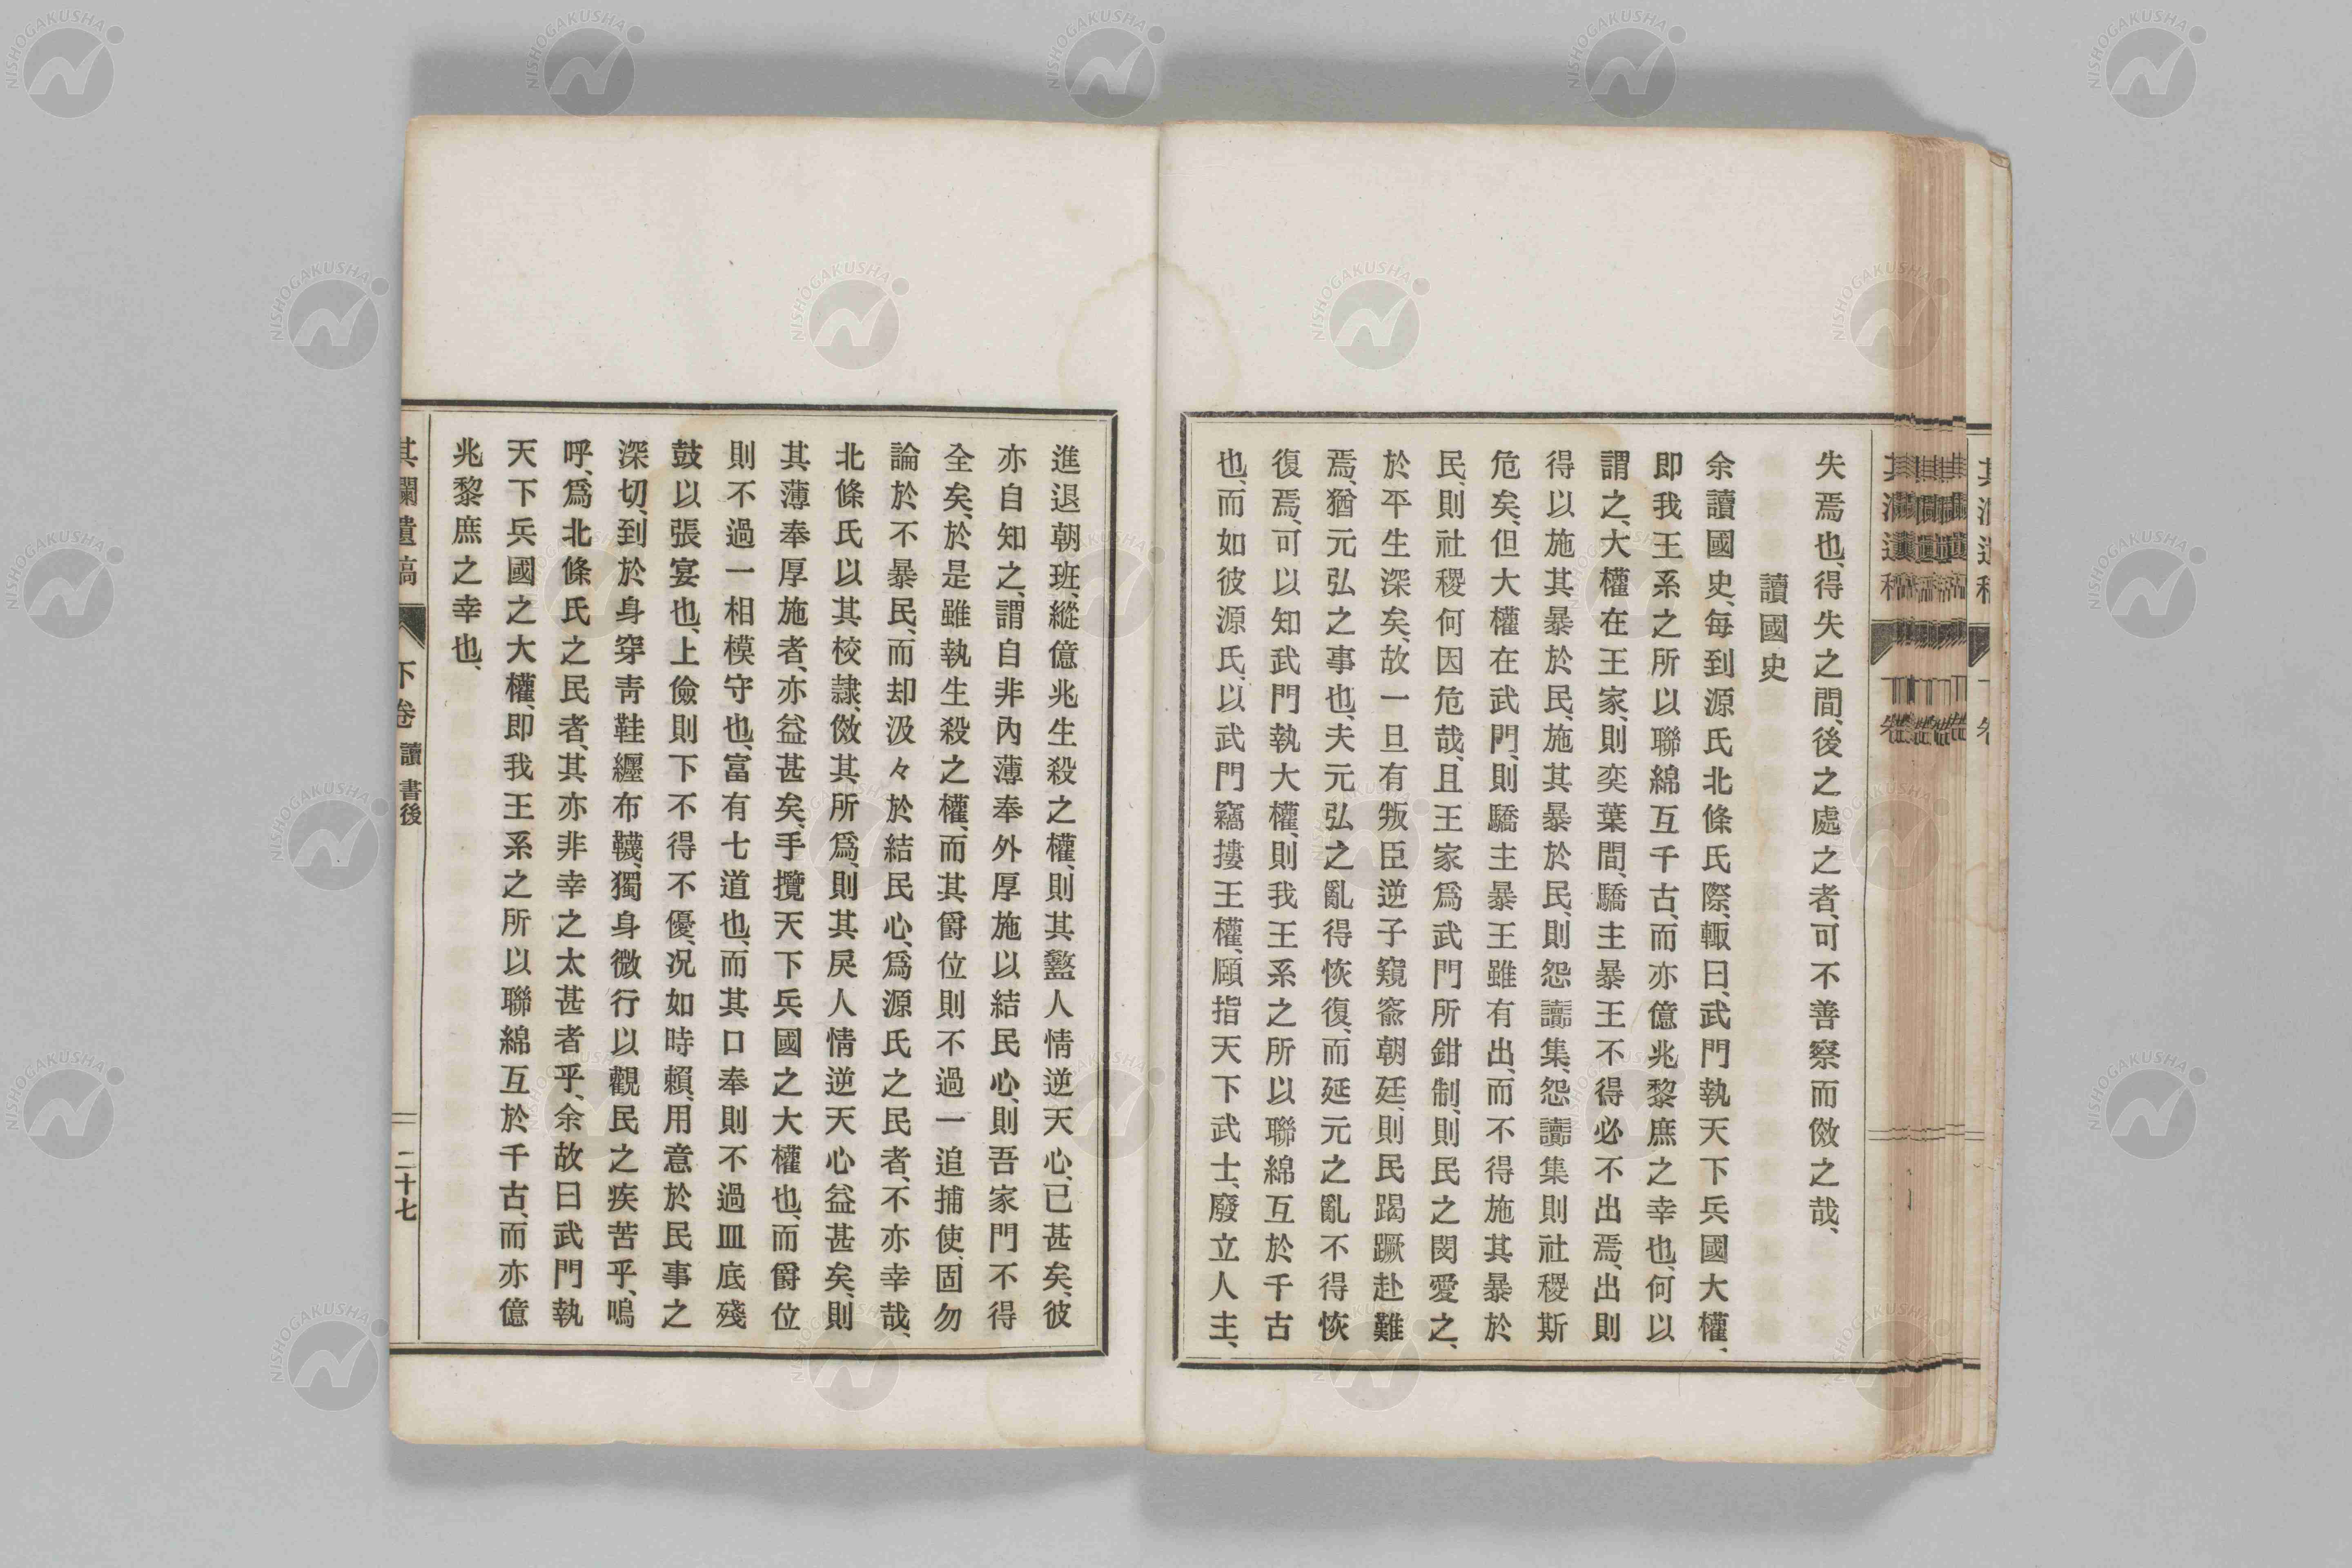 失焉也、得失之間、後之處之者、可不善察而傚之哉、
讀國史
余讀國史、每到源氏北條氏際、輙曰、武門執天下兵國大權、
即我王系之所以聯綿互千古、而亦億兆黎庶之幸也、何以
謂之、大權在王家、則奕葉間、驕主暴王不得必不出焉、出則
得以施其暴於民、施其暴於民、則怨讟集、怨讟集則社稷斯
危矣、但大權在武門、則驕主暴王雖有出、而不得施其暴於
民、則社稷何因危哉、且王家爲武門所鉗制、則民之閔愛之、
於平生深矣、故一旦有叛臣逆子窺窬朝廷、則民蹋蹶赴難
焉、猶元弘之事也、夫元弘之亂得恢復、而延元之亂不得恢
復焉、可以知武門執大權、則我王系之所以聯綿互於千古
也、而如彼源氏、以武門竊摟王權、頤指天下武士、廢立人主、
進退朝班、縱億兆生殺之權、則其盭人情逆天心、已甚矣、彼
亦自知之、謂自非內薄奉外厚施以結民心、則吾家門不得
全矣、於是雖執生殺之權、而其爵位則不過一追捕使、固勿
論於不暴民、而却汲々於結民心、爲源氏之民者、不亦幸哉、
北條氏以其校隷、傚其所爲、則其戾人情逆天心益甚矣、則
其薄奉厚施者、亦益甚矣、手攬天下兵國之大權也、而爵位
則不過一相模守也、富有七道也、而其口奉則不過皿底殘
鼓以張宴也、上儉則下不得不優、况如時賴、用意於民事之
深切、到於身穿靑鞋纒布韈、獨身微行以觀民之疾苦乎、嗚
呼、爲北條氏之民者、其亦非幸之太甚者乎、余故曰武門執
天下兵國之大權、即我王系之所以聯綿互於千古、而亦億
兆黎庶之幸也、
其瀾遺稿 下卷 讀書後 二十七